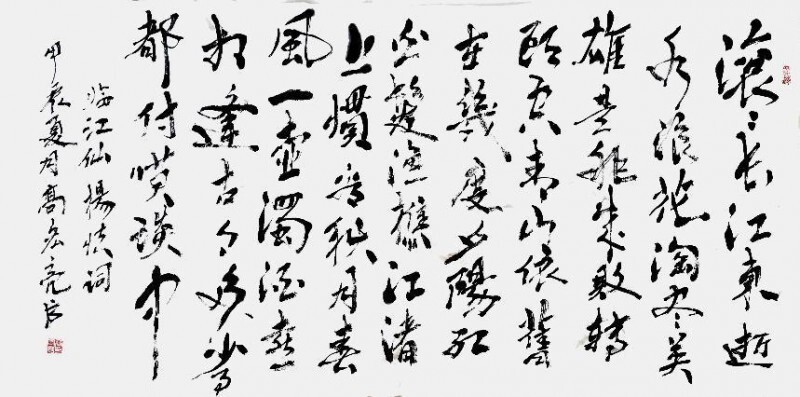 滚々长江東逝
水浪花淘尽英
雄是非成败转
頭空青山依舊
在幾度夕陽红
白髮漁樵江渚
上惯看秋月春
風一壶濁酒喜
相逢古今多少事
都付笑談中
临江仙楊慎词
甲辰夏月高宏亮书